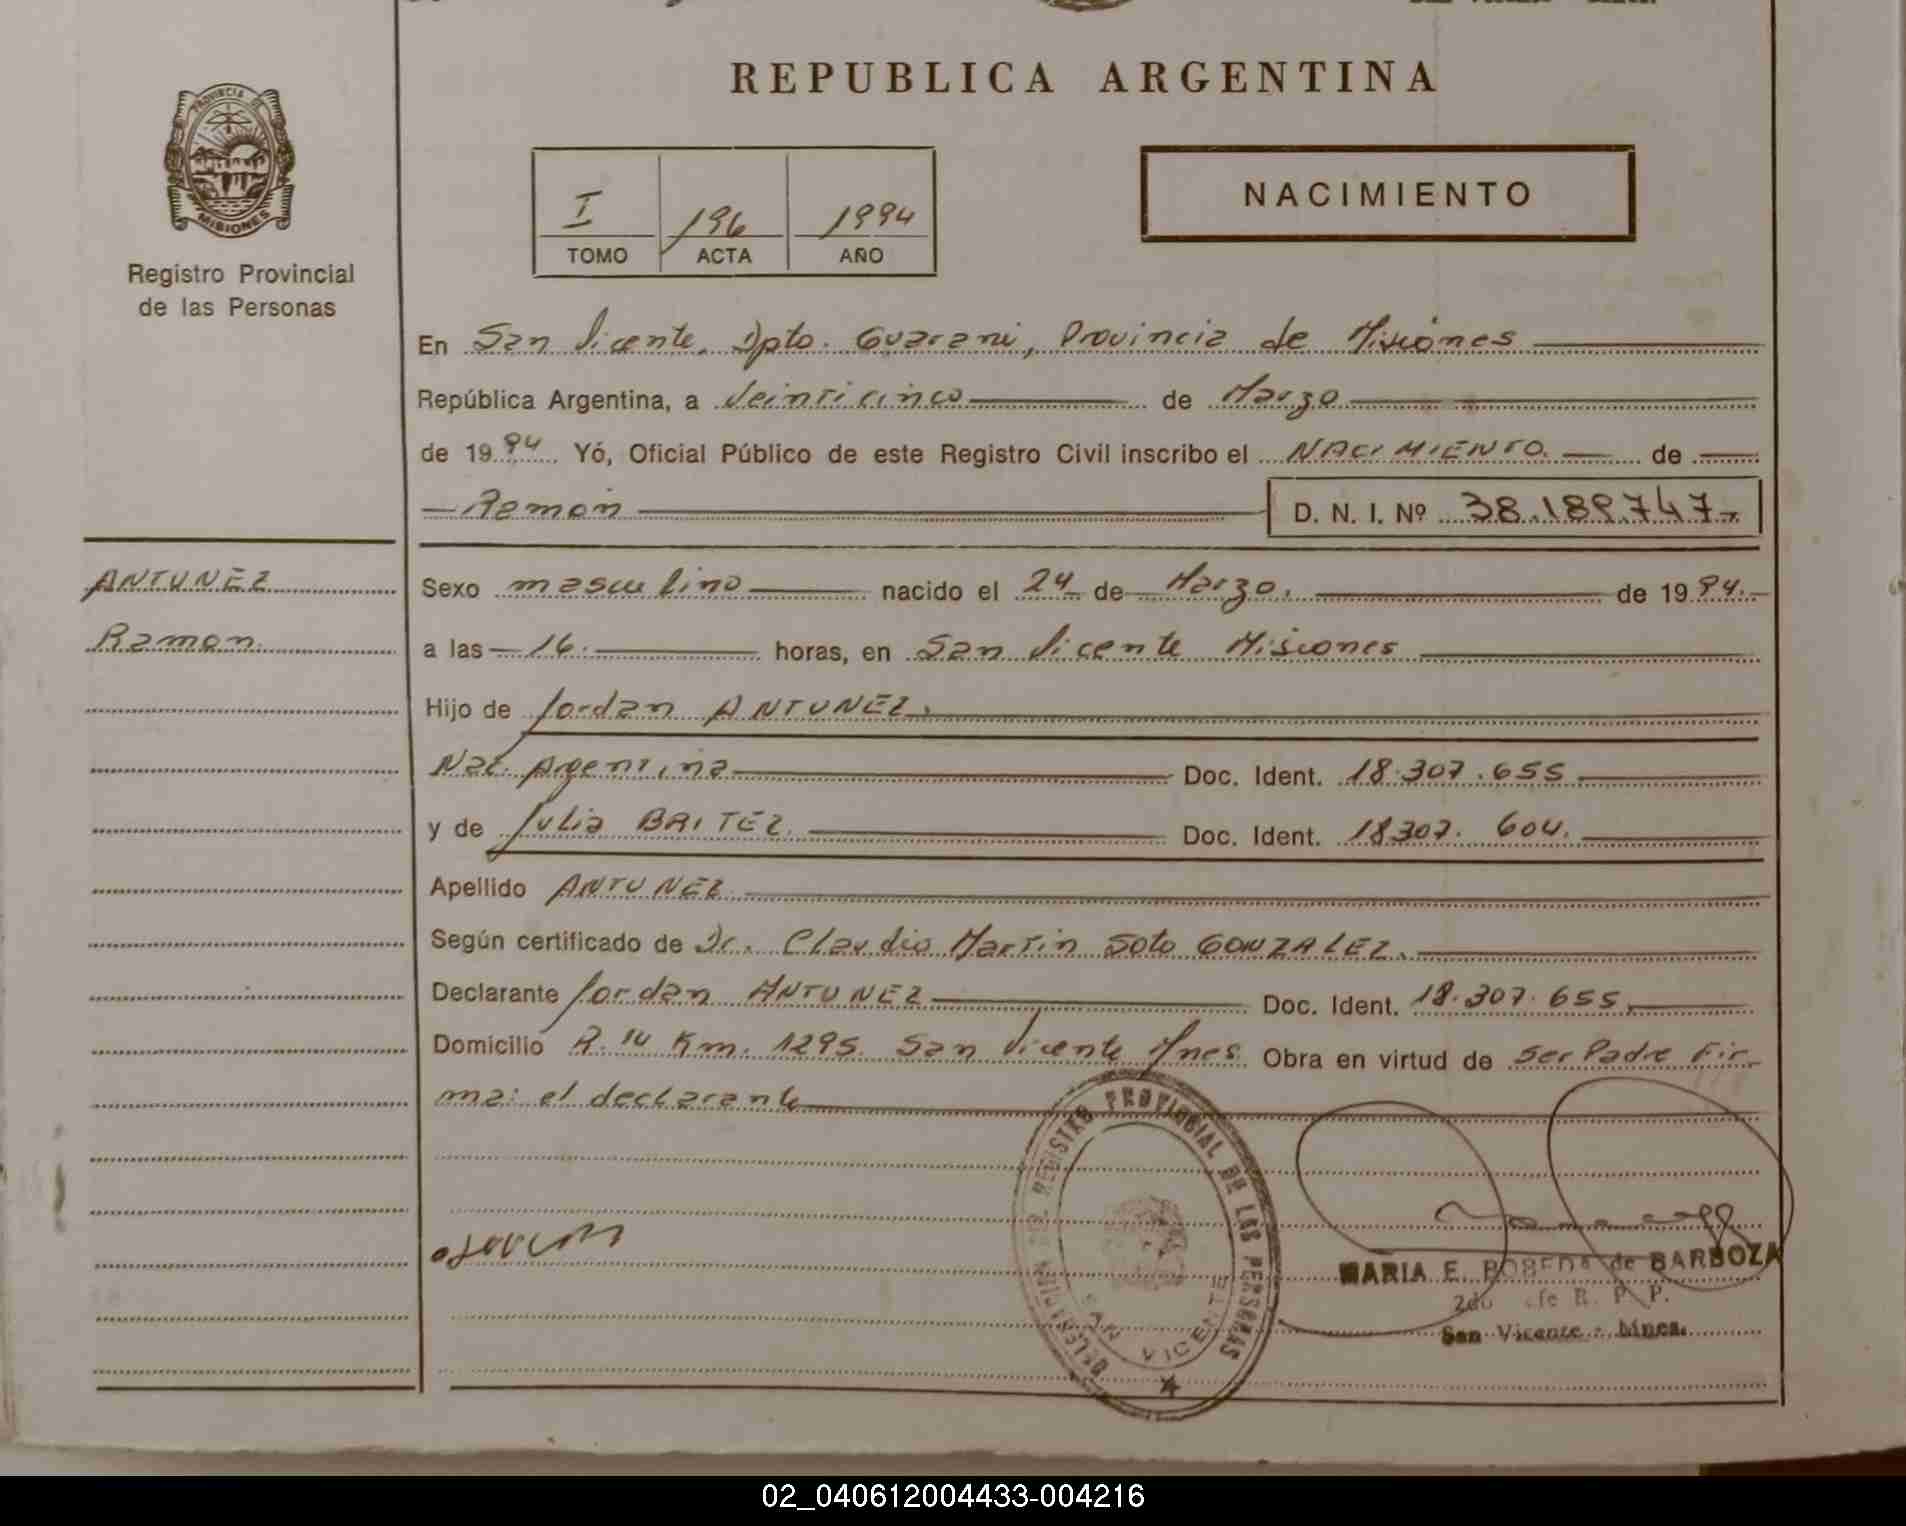 REPUBLICA ARGENTINA
PROVINCIA DE
MISIONES
Registro Provincial
de las Personas
I 196 1994
TOMO ACTA AÑO
NACIMIENTO
En San Vicente, Dpto. Guarani, Provincia de Misiones
República Argentina, a Veinticinco de Marzo
de 1994 Yó, Oficial Público de este Registro Civil inscribo el NACIMIENTO. de
Ramon D. N. I. Nº 38.189.747
ANTUNEZ
Ramon.
Sexo masculino nacido el 24 de Marzo. de 1994.
a las 16. horas, en San Vicente Misiones
Hijo de Jordan ANTUNEZ.
Nac. Argentina Doc. Ident. 18.307.655
y de Julia BRITEZ. Doc. Ident. 18307.604.
Apellido ANTUNEZ
Según certificado de Dr. Claudio Martin Soto GONZALEZ.
Declarante Jordan ANTUNEZ Doc. Ident. 18.307.655
Domicilio R.14 Km. 1295. San Vicente Mnes. Obra en virtud de ser Padre Fir-
ma: el declarante
DELEGACION DEL REGISTRO PROVINCIAL DE LAS PERSONAS
SAN VICENTE
MARIA E. de BARBOZA
2do R. P. P.
San Vicente - Mnes.
02_040612004433-004216